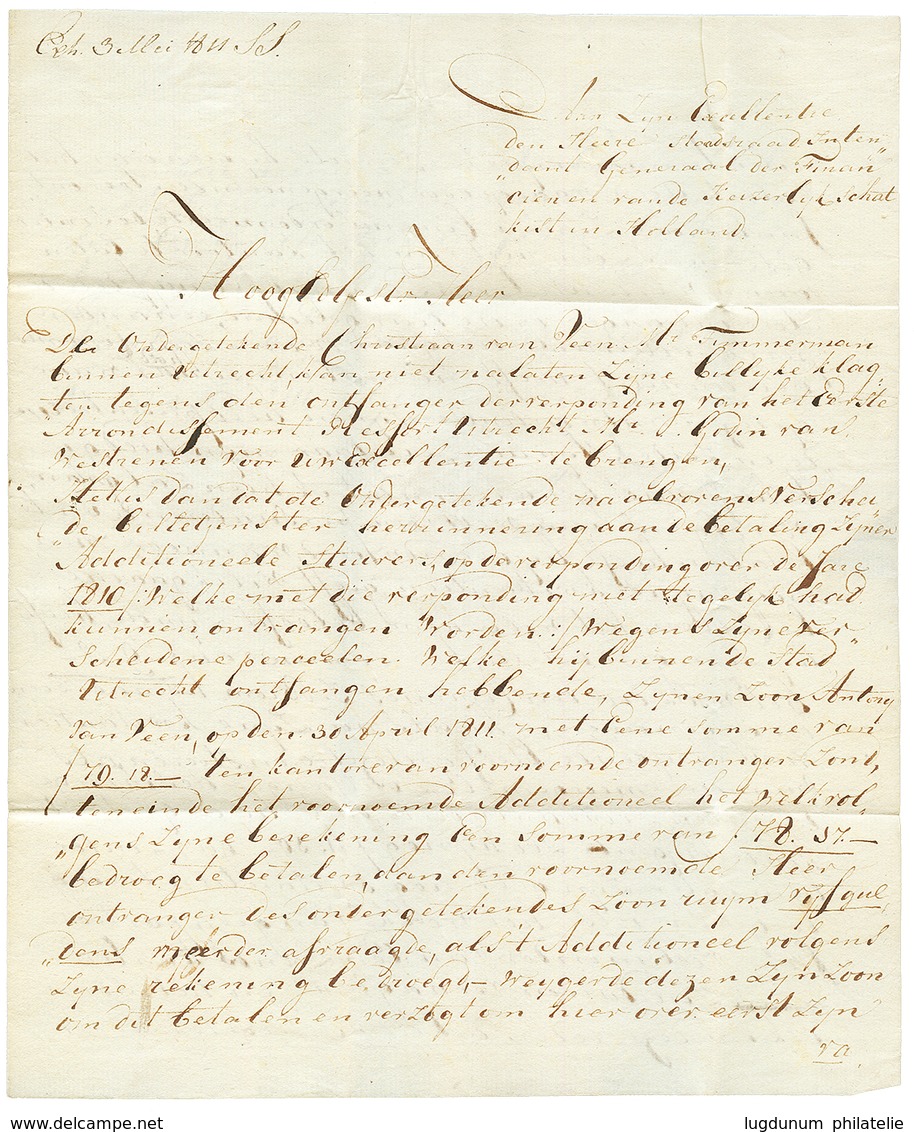 Exh. 3 Mei 1811 SS.
Aan Zyn Excellentie
den Heere Staadsraad Inten„
„dant Generaal der Finan„
cien en van de Keizerlyk Schat
kist in Holland
Hoog Edele Heer
De Ondergetekende Christiaan van Veen Mr Timmerman
binnen Utrecht, kan niet nalaten Zyne billyke klag„
ten tegens den ontfanger der verponding van het Eerste
Arrondissement Ressort Utrecht Mr J. Godin van
Westrenen voor uw Excellentie te brengen,
Het is dan dat de Ondergetekende na alvorens verschei„
de billetjens ter herinnering aan de betaling Zyner
Additioneele Stuivers, op de verponding over de Jare
1810 /: Welke met die verponding niet tegelyk had
kunnen ontvangen Worden :/ Wegens Zyne ver„
scheidene perceelen Welke hy binnen de Stad
Utrecht ontfangen hebbende, Zynen Zoon Antony
van Veen, op den 30 April 1811 met Eene somme van
f 79.18.— ten kantore van voornoemde ontvanger Zont,
teneinde het voornoemde Additioneel het Welk vol„
„gens Zyne berekening Een Somme van f 78.17.—
bedroeg te betalen, dan den voornoemde Heer
ontvanger des ondergetekendes Zoon ruym vyf gul„
„dens meerder afvraagde, als 't Additioneel volgens
Zyne rekening bedroegt,— Weygerde dezen Zyn Zoon
om dit betalen en verzogt om hier over eerst Zyn
va
www.delcampe.net
lugdunum philatelie